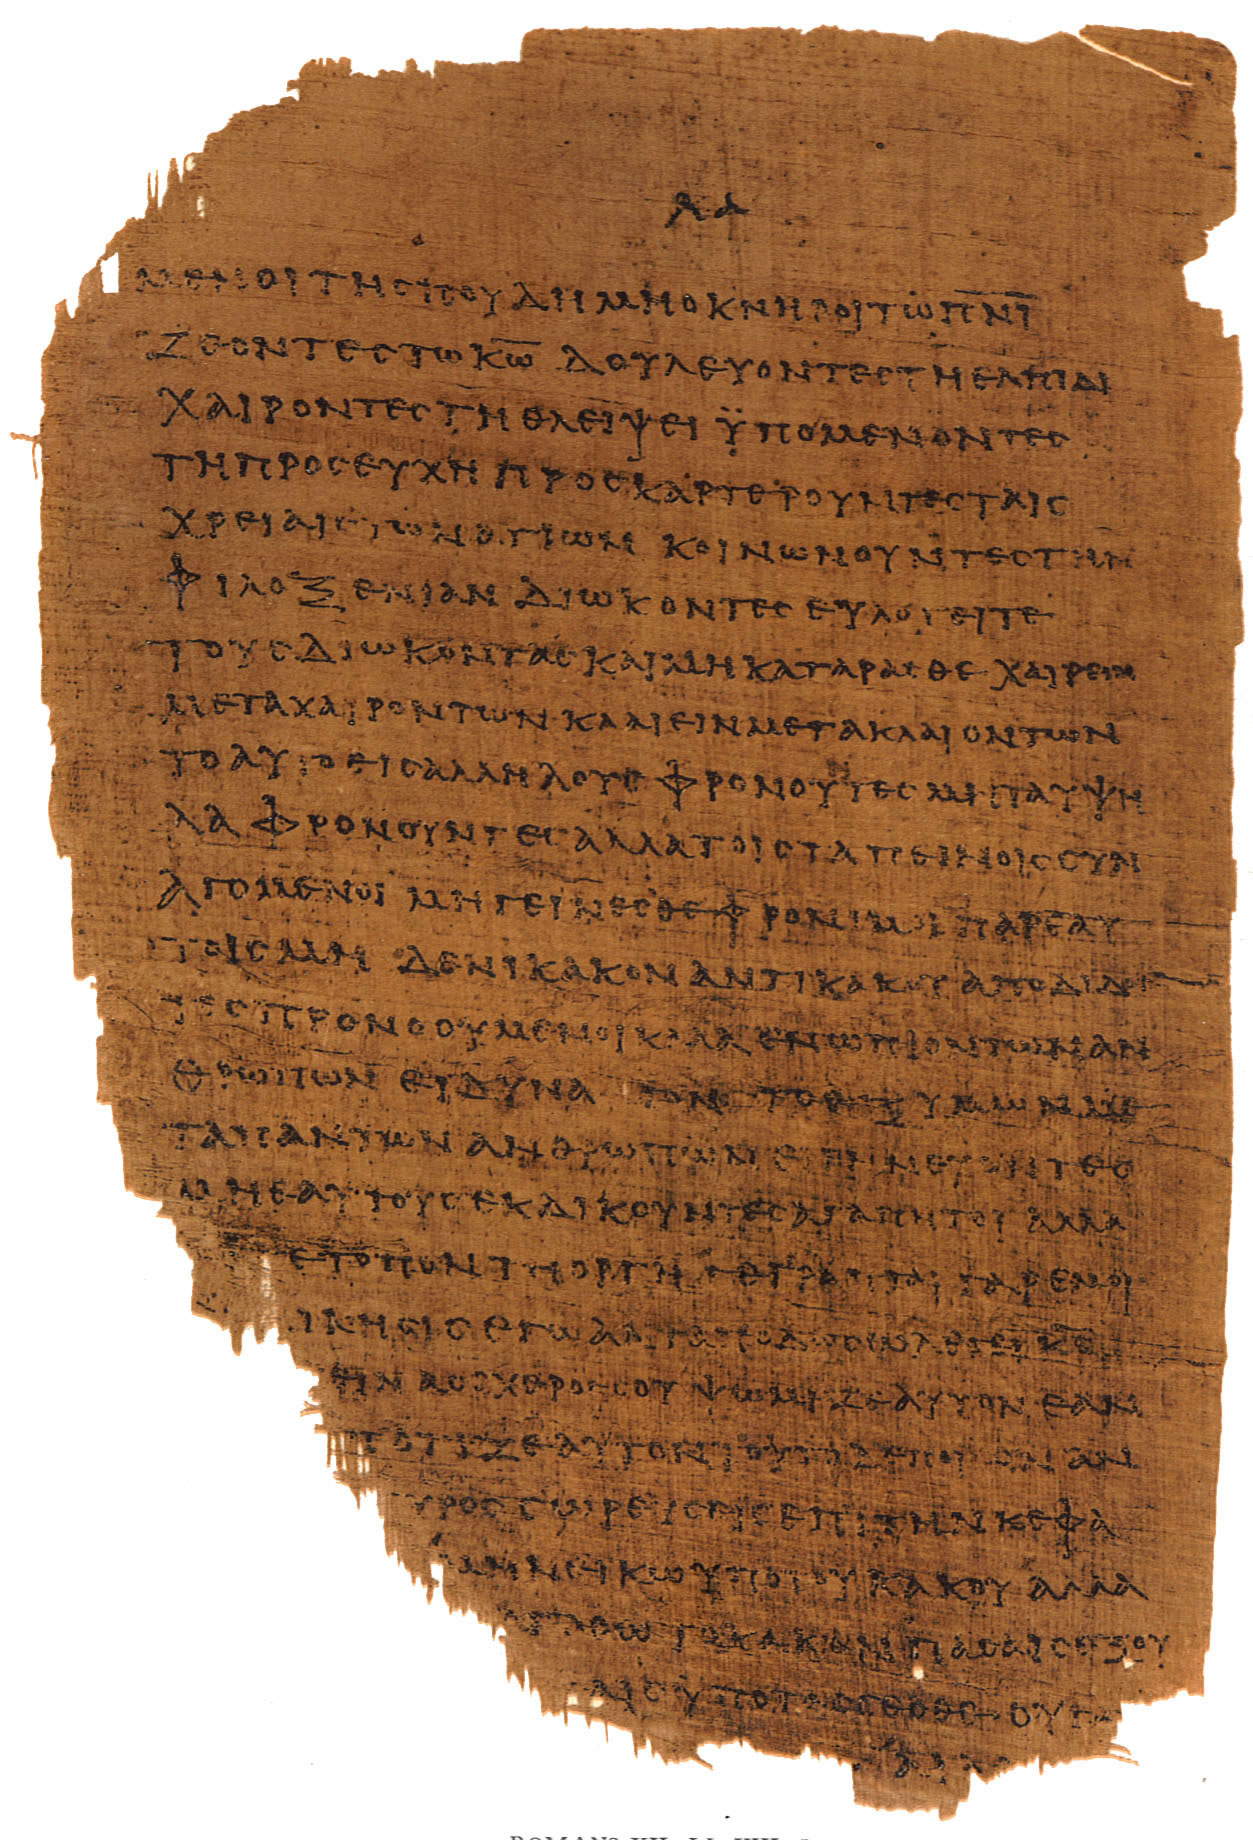 λα
μενοι τη σπουδη μη οκνηροι τω π̅ν̅ι̅
ζεοντες τω κ̅ω̅ δουλευοντες τη ελπιδι
χαιροντες τη θλειψει ϋπομενοντες
τη προσευχη προσκαρτερουντες ταις
χρειαις των αγιων κοινωνουντες την
φιλοξενιαν διωκοντες ευλογειτε
τους διωκοντας και μη καταρασθε χαιρειν
μετα χαιροντων κλαιειν μετα κλαιοντων
το αυτο εις αλληλους φρονουτες μη τα υψη
λα φρονουντες αλλα τοις ταπεινοις συν
αγομενοι μη γεινεσθε φρονιμοι παρ εαυ
τοις μηδενι κακον αντι κακου αποδιδ
τες προνοουμενοι καλα ενωπιον των αν
θρωπων ει δυνατον το εξ υμων με
τα παντων ανθρωπων ειρηνευοντες
μη εαυτους εκδικουντες αγαπητοι αλλα
ετοπον τη οργη γεγραπται γαρ εμοι
ικησις εγω ανταποδωσω λεγει κ̅ς̅
εινα ο εχθρος σου ψωμιζε αυτον εαν
ποτιζε αυτον τουτο γαρ ποιων αν
πυρος σωρευσεις επι την κεφα
μη νεικω υπο του κακου αλλα
αγαθω το κακον πασαις εξου
αις υποτασσεσθε ου γαρ